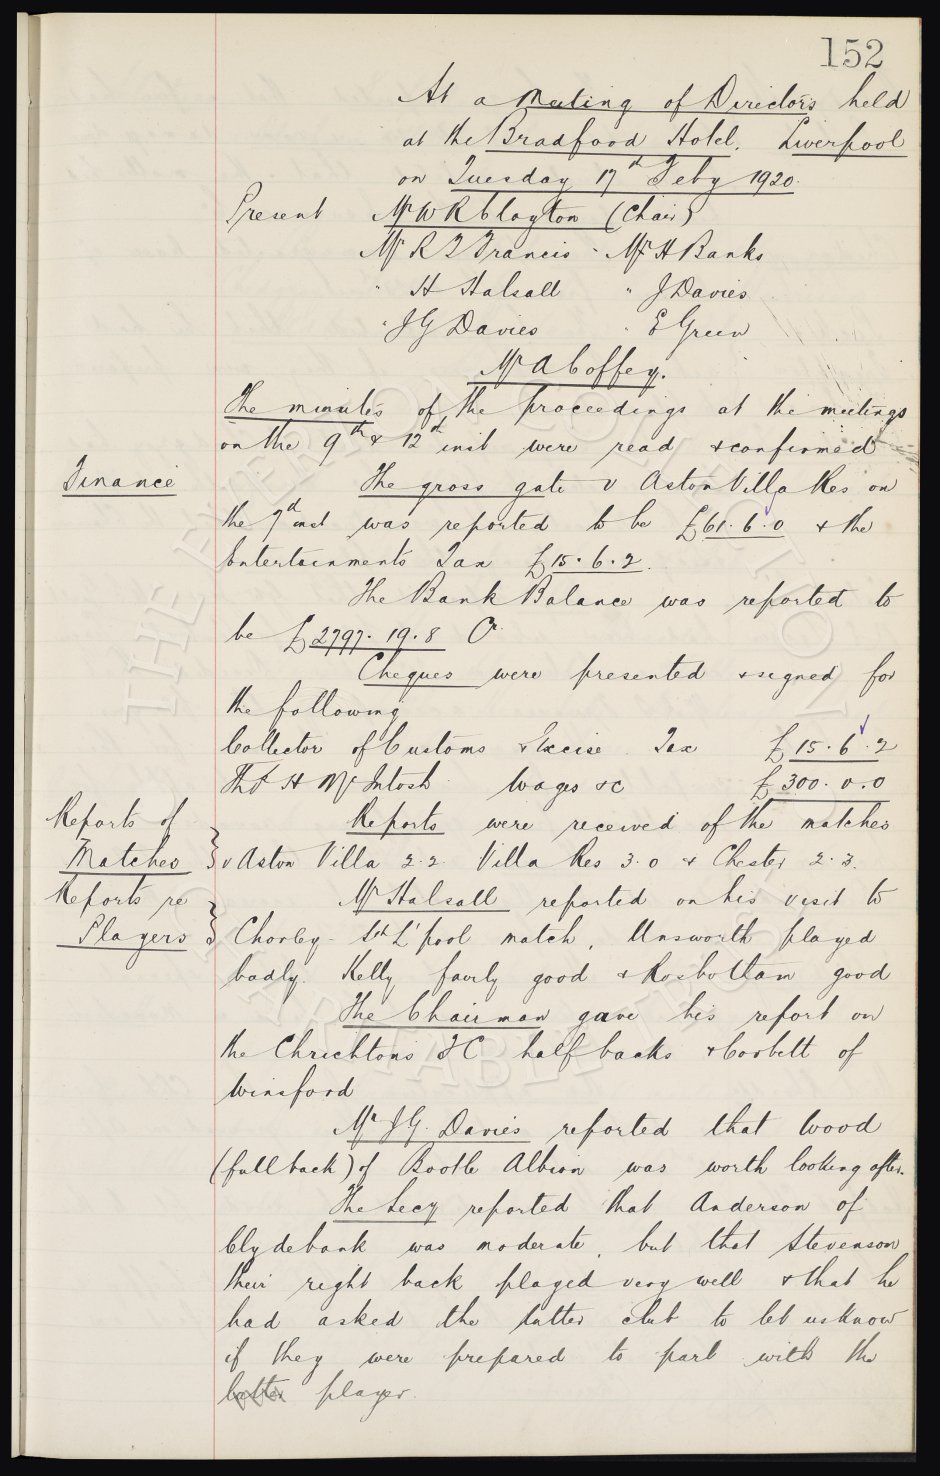 152
At a Meeting of Directors held
at the Bradford Hotel, Liverpool
on Tuesday 17th Feby 1920.
Present Mr W R Clayton (Chair)
Mr R T Francis " Mr H Banks
" H Halsall " J Davies
" J G Davies " E Green
Mr A Coffey.
The minutes of the proceedings at the meetings
on the 9th & 12th inst were read & confirmed
Finance The gross gate v Aston Villa Res on
the 7th inst was reported to be £61. 6. 0 & the
Entertainments Tax £15. 6. 2.
The Bank Balance was reported to
be £2797. 19. 8 Cr
Cheques were presented & signed for
the following
Collector of Customs & Excise Tax £15. 6. 2
Thos H McIntosh Wages &c £300. 0. 0
Reports of Reports were received of the matches
Matches } v Aston Villa 2.2. Villa Res 3.0 & Chester 2.3.
Reports re Mr Halsall reported on his visit to
Players } Chorley - Sth L'pool match, Unsworth played
badly. Kelly fairly good & Rosbottam good
The Chairman gave his report on
the Chrichtons FC half backs & Corbett of
Winsford
Mr J G. Davies reported that Wood
(full back) of Bootle Albion was worth looking after.
The Secy reported that Anderson of
Clydebank was moderate, but that Stevenson
their right back played very well & that he
had asked the latter club to let us know
if they were prepared to part with the
latter player.
THE EVERTON COLLECTION
CHARITABLE TRUST